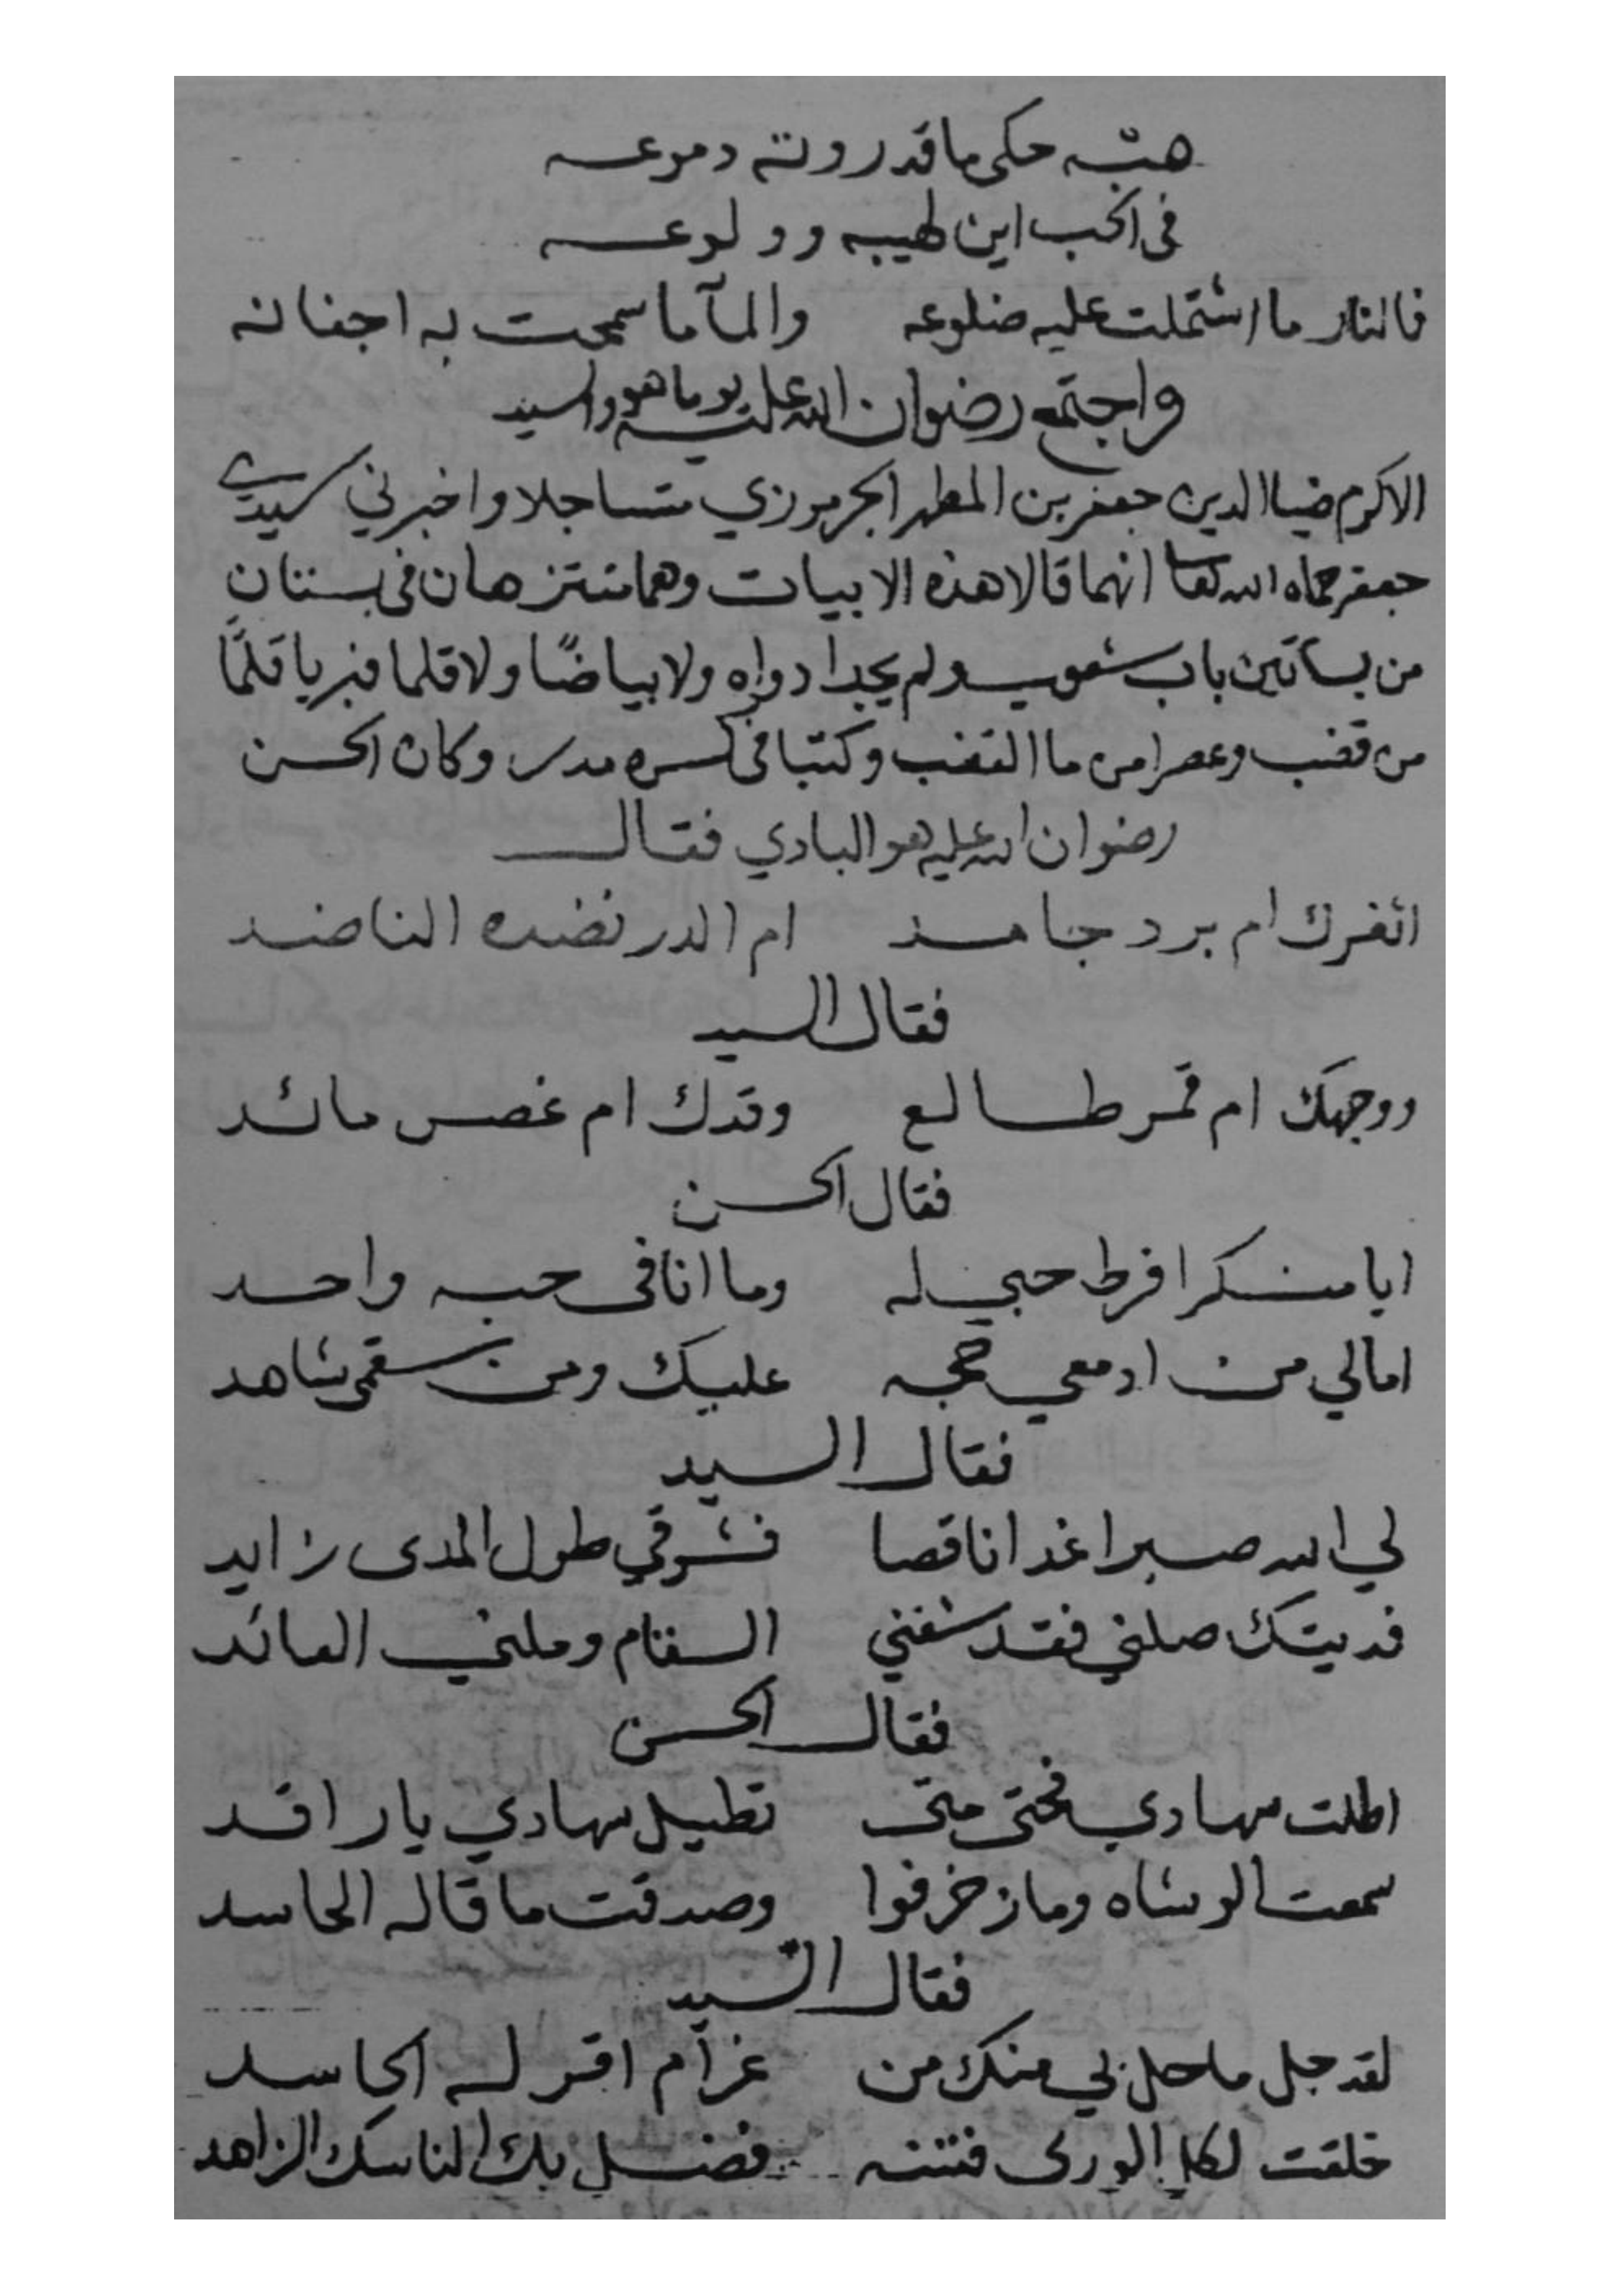 هبه حكى ما قد روته دموعه
فى الحب اين لهيبه وولوعه
فالنار ما اشتملت عليه ضلوعه والمآ ما سمحت به اجفانه
واجتمع رضوان الله عليه يوما هو والسيد
الاكرم ضيا الدين جعفر بن المطهر الجرموزي متساجلا واخبرني سيدي
جعفر حماه الله تعالى انهما قالا هذه الابيات وهما متنزهان فى بستان
من بساتين باب شعوب ولم يجدا دواه ولا بياضًا ولا قلما فبريا قلمًا
من قضب وعصرا من ما القضب وكتبا فى كسره مدر وكان الحسن
رضوان الله عليه هو البادي فقال
اثغرك ام برد جامد ام الدر نضده الناضد
فقال السيد
ووجهك ام قمر طالع وقدك ام غصن مائد
فقال الحسن
ايا منكرا فرط حبي له وما انا فى حبه واحد
امالي من ادمعي حجه عليك ومن سقمى شاهد
فقال السيد
لي الله صبرا غدا ناقصا فشوقي طول المدى زايد
فديتك صلني فقد شفني السقام وملني العائد
فقال الحسن
اطلت سهادي فحتى متى تطيل سهادي يا راقد
سمعت الوشاه وما زخرفوا وصدقت ما قاله الحاسد
فقال السيد
لقد جل ما حل بي منك من غرام اقر له الحاسد
خلقت لكل الورى فتنه فضل بك الناسك الزاهد